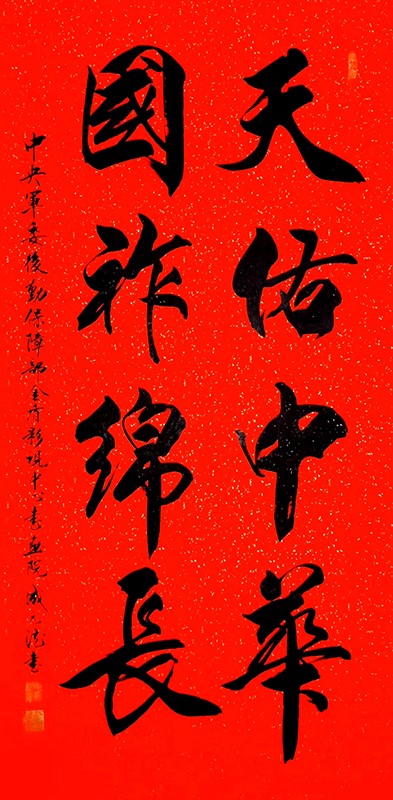 天佑中華
國祚綿長
中央軍委後勤保障部金盾影視中心書畫院